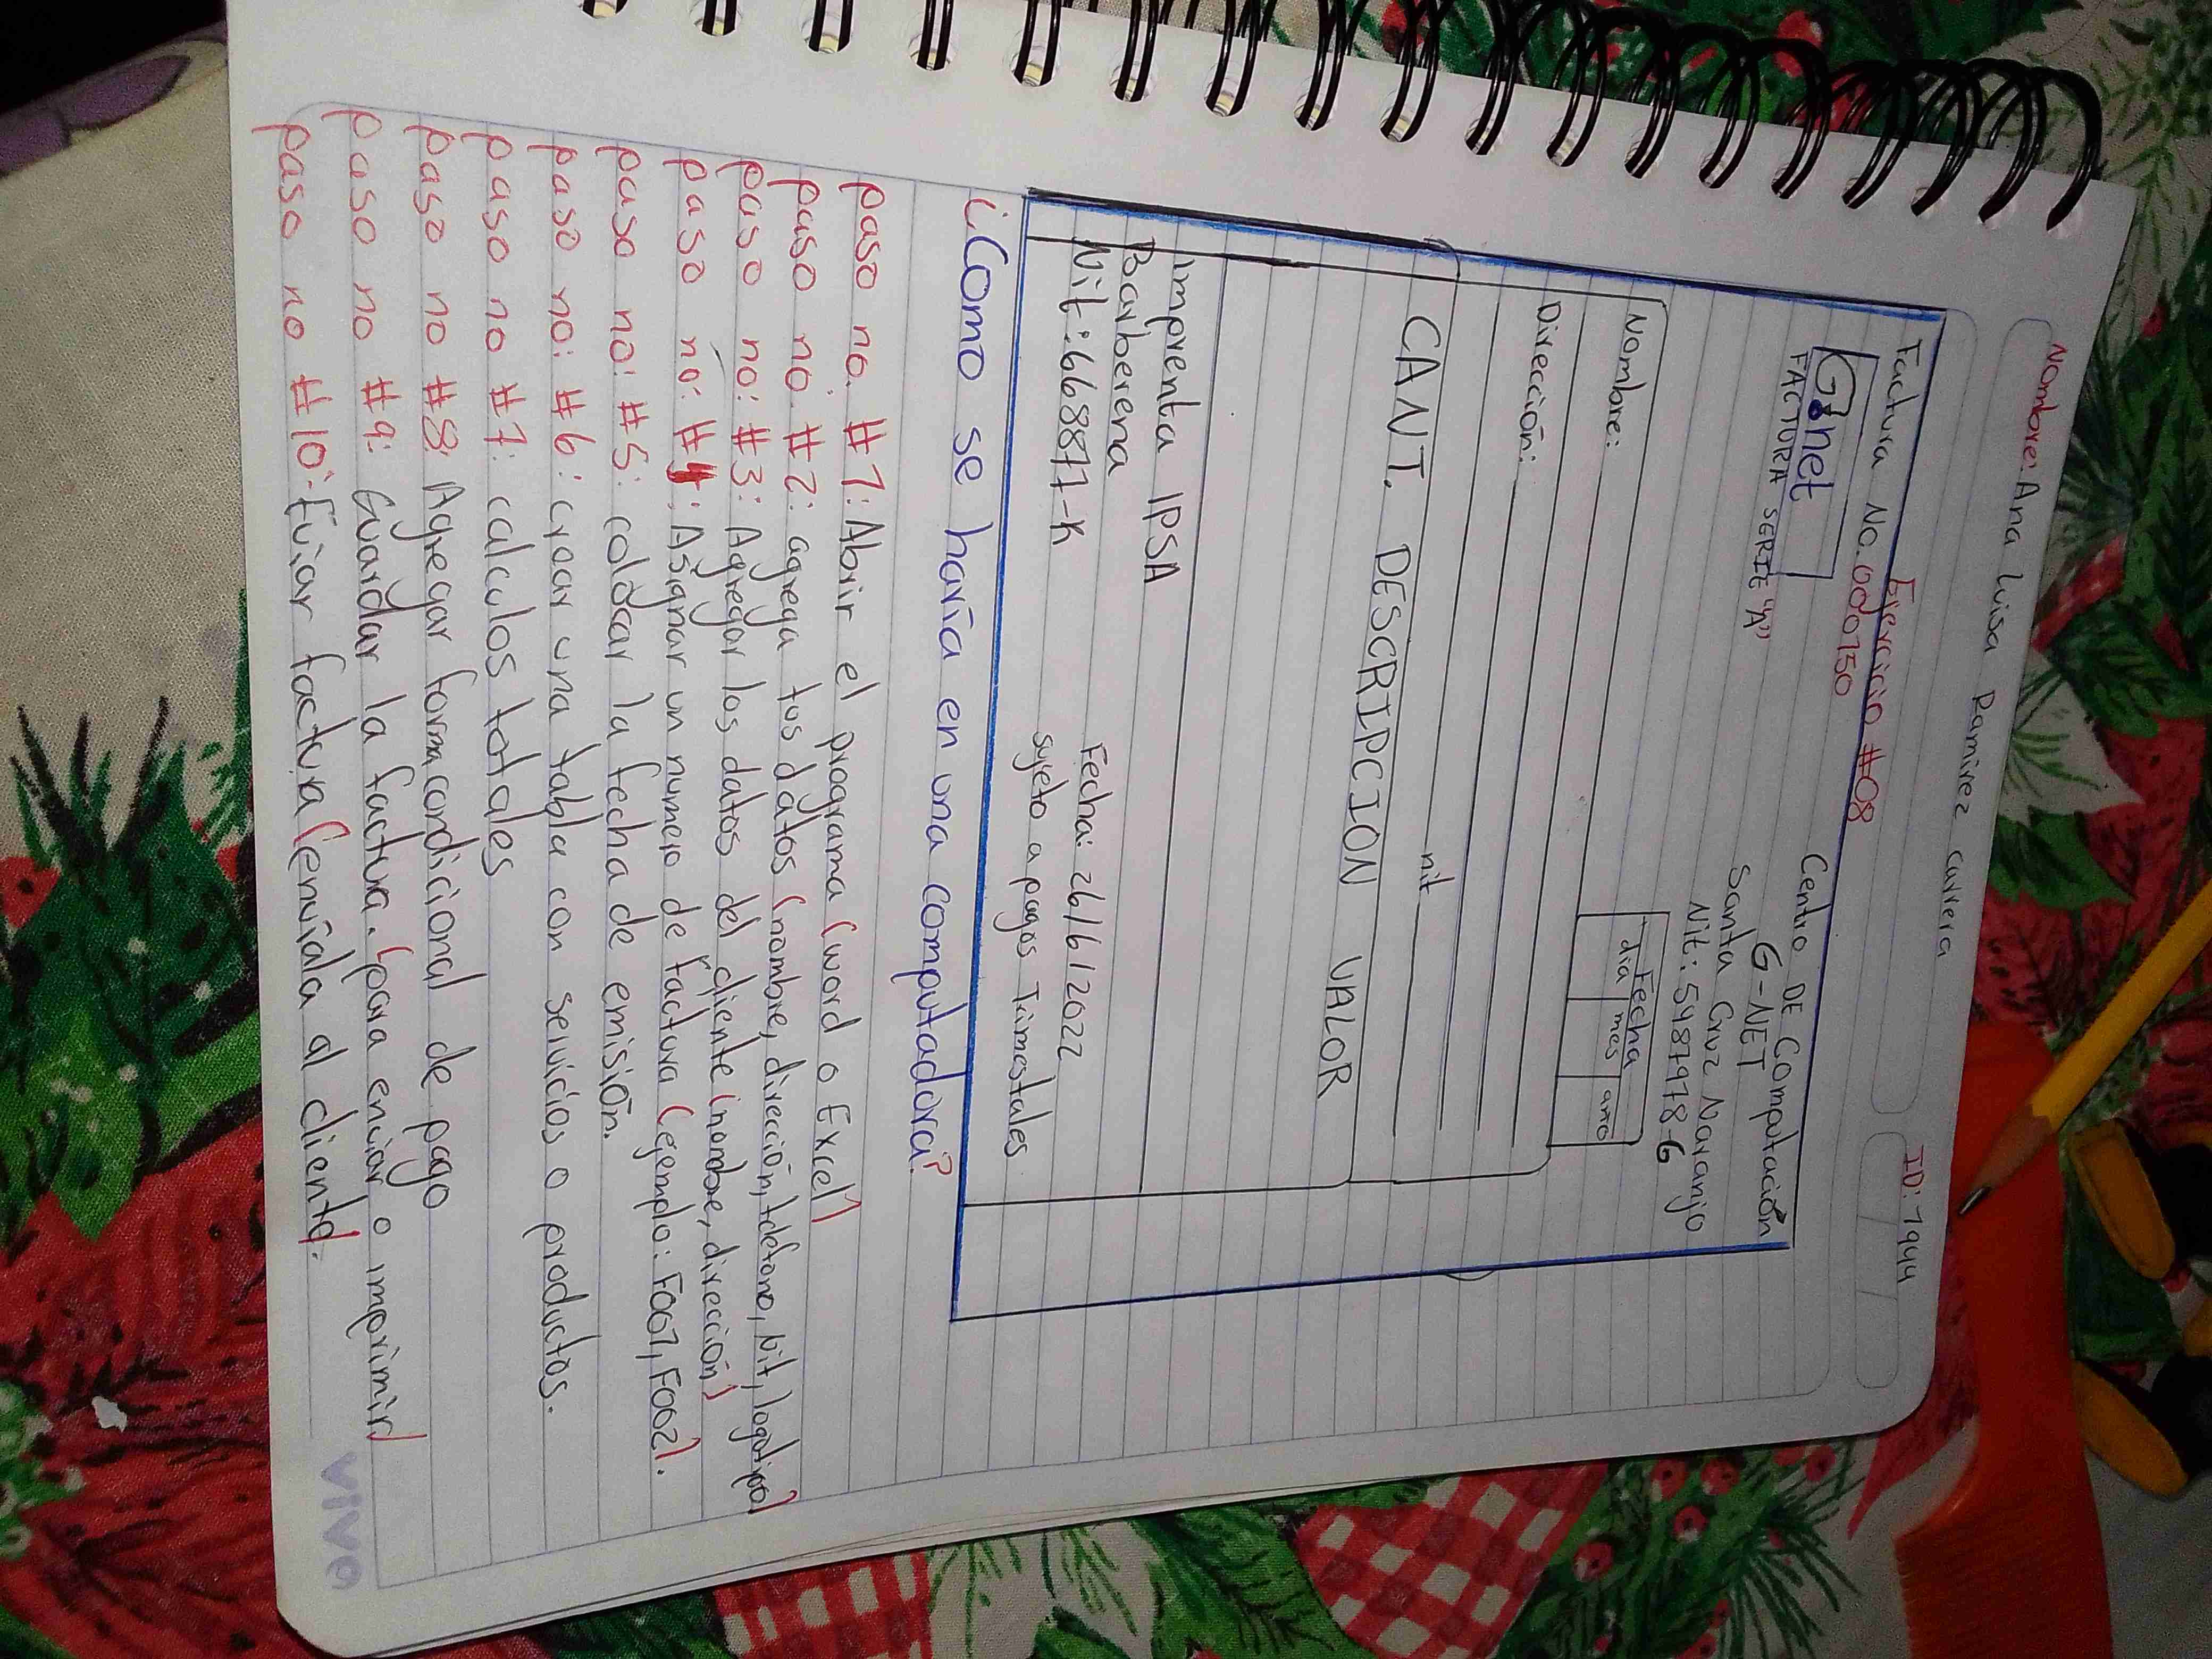 Nombre: Ana Luisa Ramirez Carrera
ID: 1944
Ejercicio #08
Factura No. 0000150
G.net
FACTURA SERIE "A"
Centro DE Computación
G-NET
Santa Cruz Naranjo
Nit: 5487978-6
Fecha
día mes año
Nombre:
Dirección:
nit
CANT. DESCRIPCION VALOR
Imprenta IPSA
Barberena
Nit: 668877-K
Fecha: 26/6/2022
sujeto a pagos Trimestales
¿Como se haría en una computadora?
paso no. #1: Abrir el programa (word o Excel)
paso no. #2: agrega tus datos (nombre, dirección, teléfono, Nit, logotipo)
paso no: #3: Agregar los datos del cliente (nombre, dirección)
paso no: #4: Asignar un numero de factura (egemplo: F001, F002).
paso no: #5: colocar la fecha de emisión.
paso no: #6: crear una tabla con servicios o productos.
paso no #7: calculos totales
paso no #8: Agregar forma condicional de pago
paso no #9: Guardar la factura. (para enviar o imprimir)
paso no #10: Eviar factura (envíala al cliente).
vivo